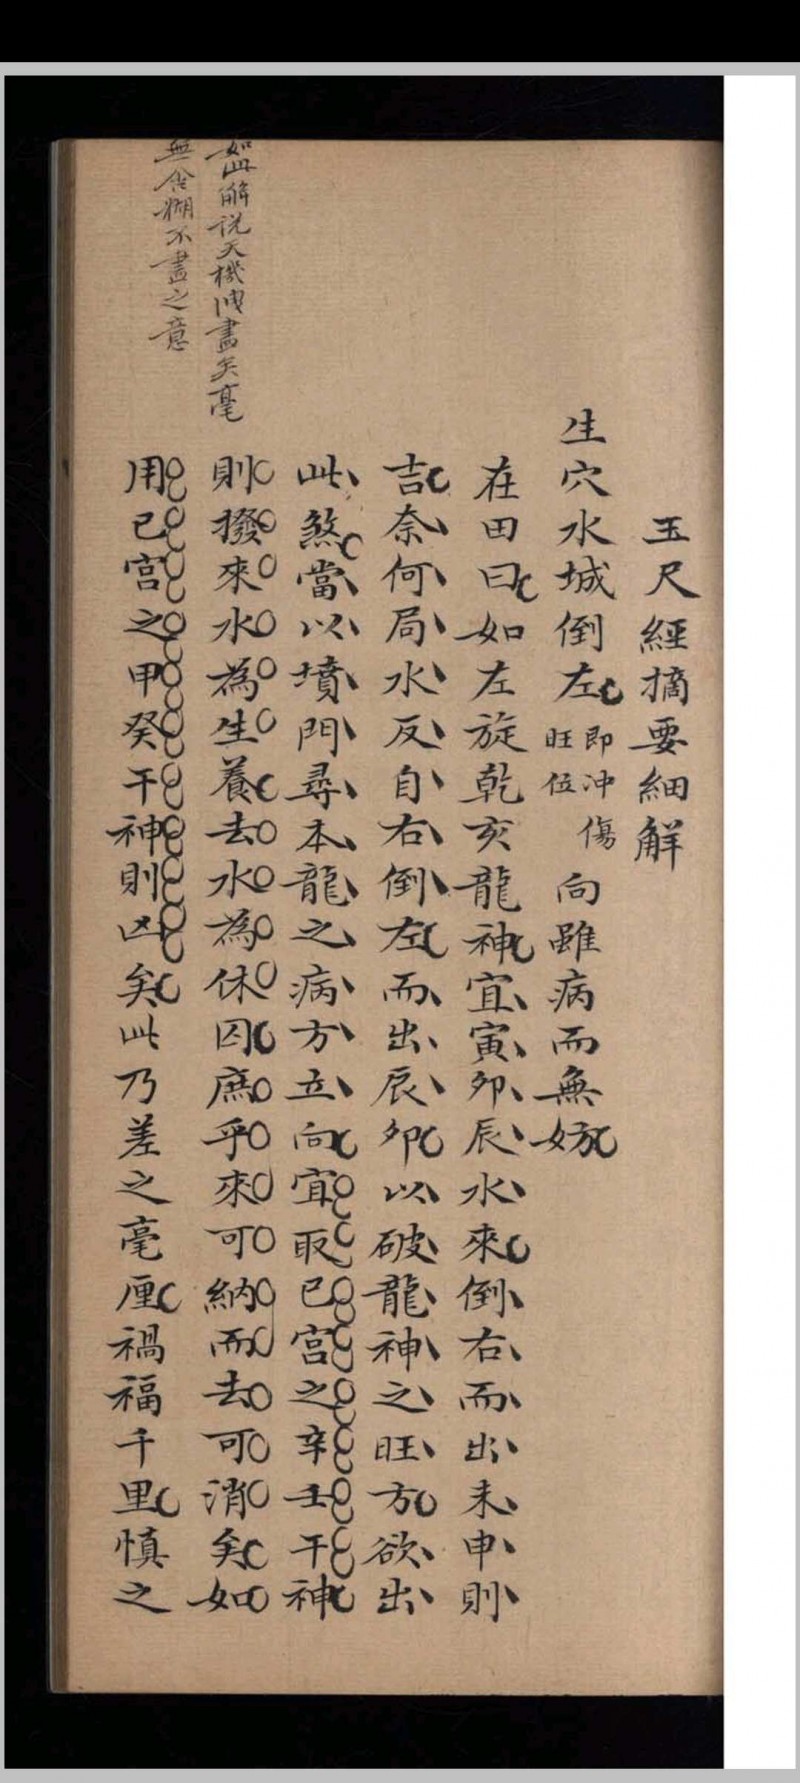 玉尺經摘要細解
生穴水城倒左即冲傷旺位向雖病而無妨
在田曰如左旋乾亥龍神宜寅卯辰水來倒右而出未申則
吉奈何局水反自右倒左而出辰卯以破龍神之旺方欲出
此煞當以墳門尋本龍之病方立向宜取已宮之辛壬干神
則撥來水為生養去水為休囚庶乎來可納而去可消矣如
用已宮之甲癸干神則凶矣此乃差之毫厘禍福千里慎之
如此解說天機洩盡矣毫
無含糊不盡之意